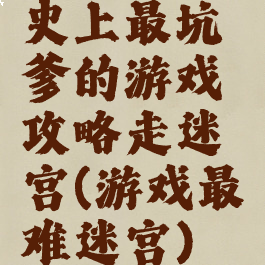 史上最坑
爹的游戏
攻略走迷
宫(游戏最
难迷宫)